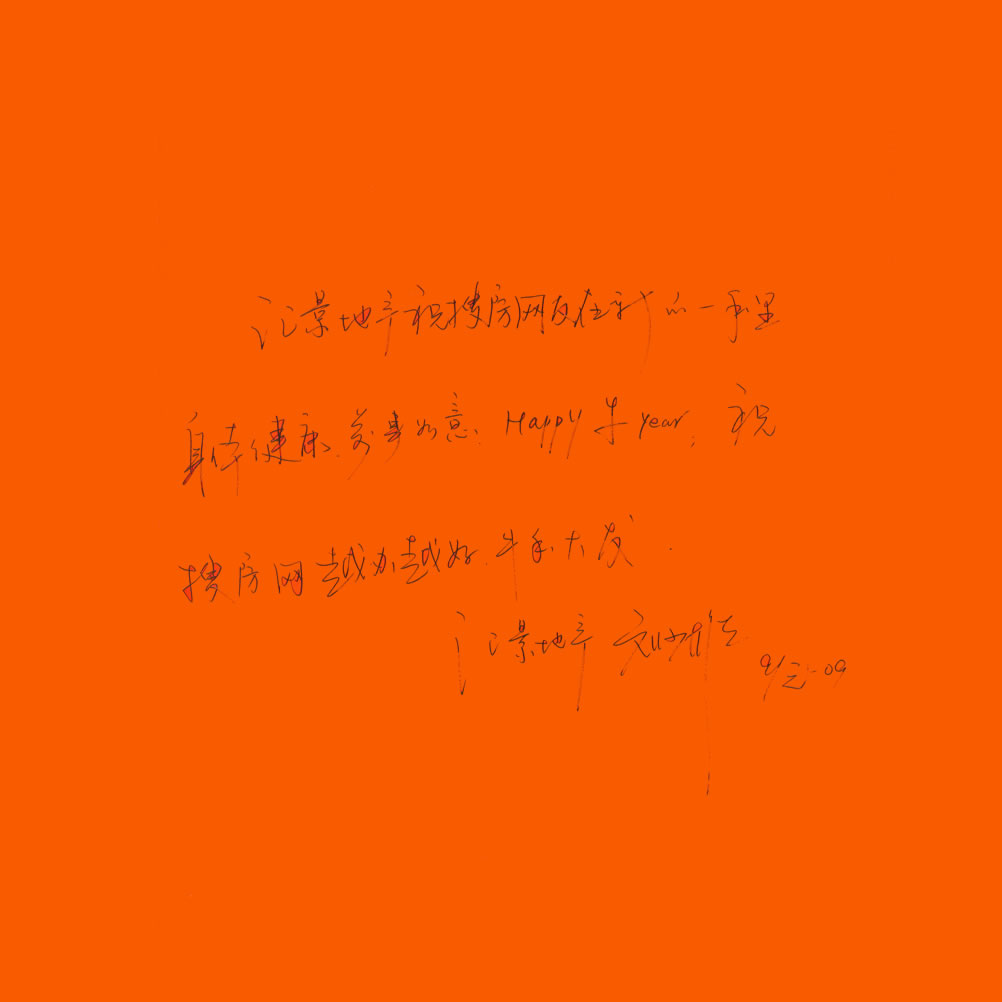 汇景地产祝搜房网友在新的一年里
身体健康、万事如意、Happy 牛 year, 祝
搜房网越办越好、牛年大发.
汇景地产 刘 9/元-09